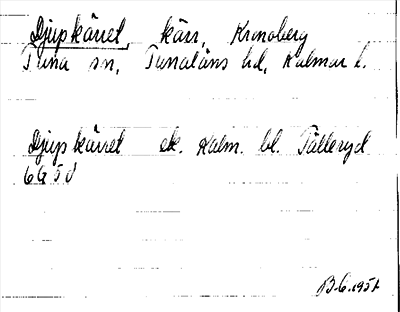 Djupkärret, kärr, Kronoberg
Tuna sn, Tunaläns hd, Kalmar l.
Djupkärret ek. Kalm. bl. Tälleryd
6G5d
B-G. 1951